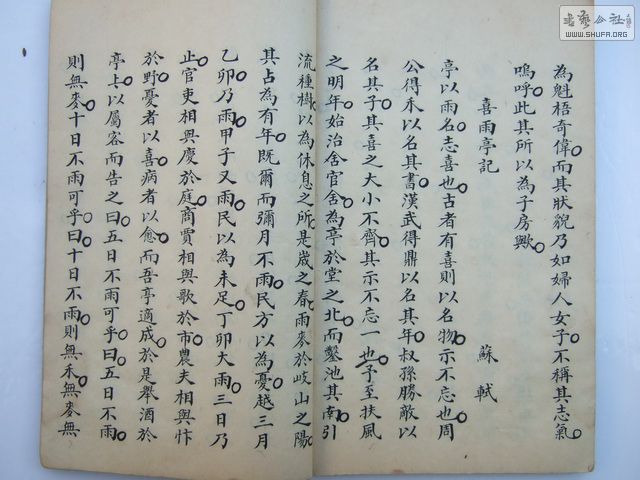 為魁梧奇偉而其狀貌乃如婦人女子不稱其志氣
嗚呼此其所以為子房歟
喜雨亭記
蘇軾
亭以雨名志喜也古者有喜則以名物示不忘也周
公得禾以名其書漢武得鼎以名其年叔孫勝敵以
名其子其喜之大小不齊其示不忘一也予至扶風
之明年始治舍官舍為亭於堂之北而鑿池其南引
流種樹以為休息之所是歲之春雨麥於岐山之陽
其占為有年既爾而彌月不雨民方以為憂越三月
乙卯乃雨甲子又雨民以為未足丁卯大雨三日乃
止官吏相與慶於庭商賈相與歌於市農夫相與忭
於野憂者以喜病者以愈而吾亭適成於是舉酒於
亭上以屬客而告之曰五日不雨可乎曰五日不雨
則無麥十日不雨可乎曰十日不雨則無禾無麥無
书艺公社
WWW.SHUFA.ORG